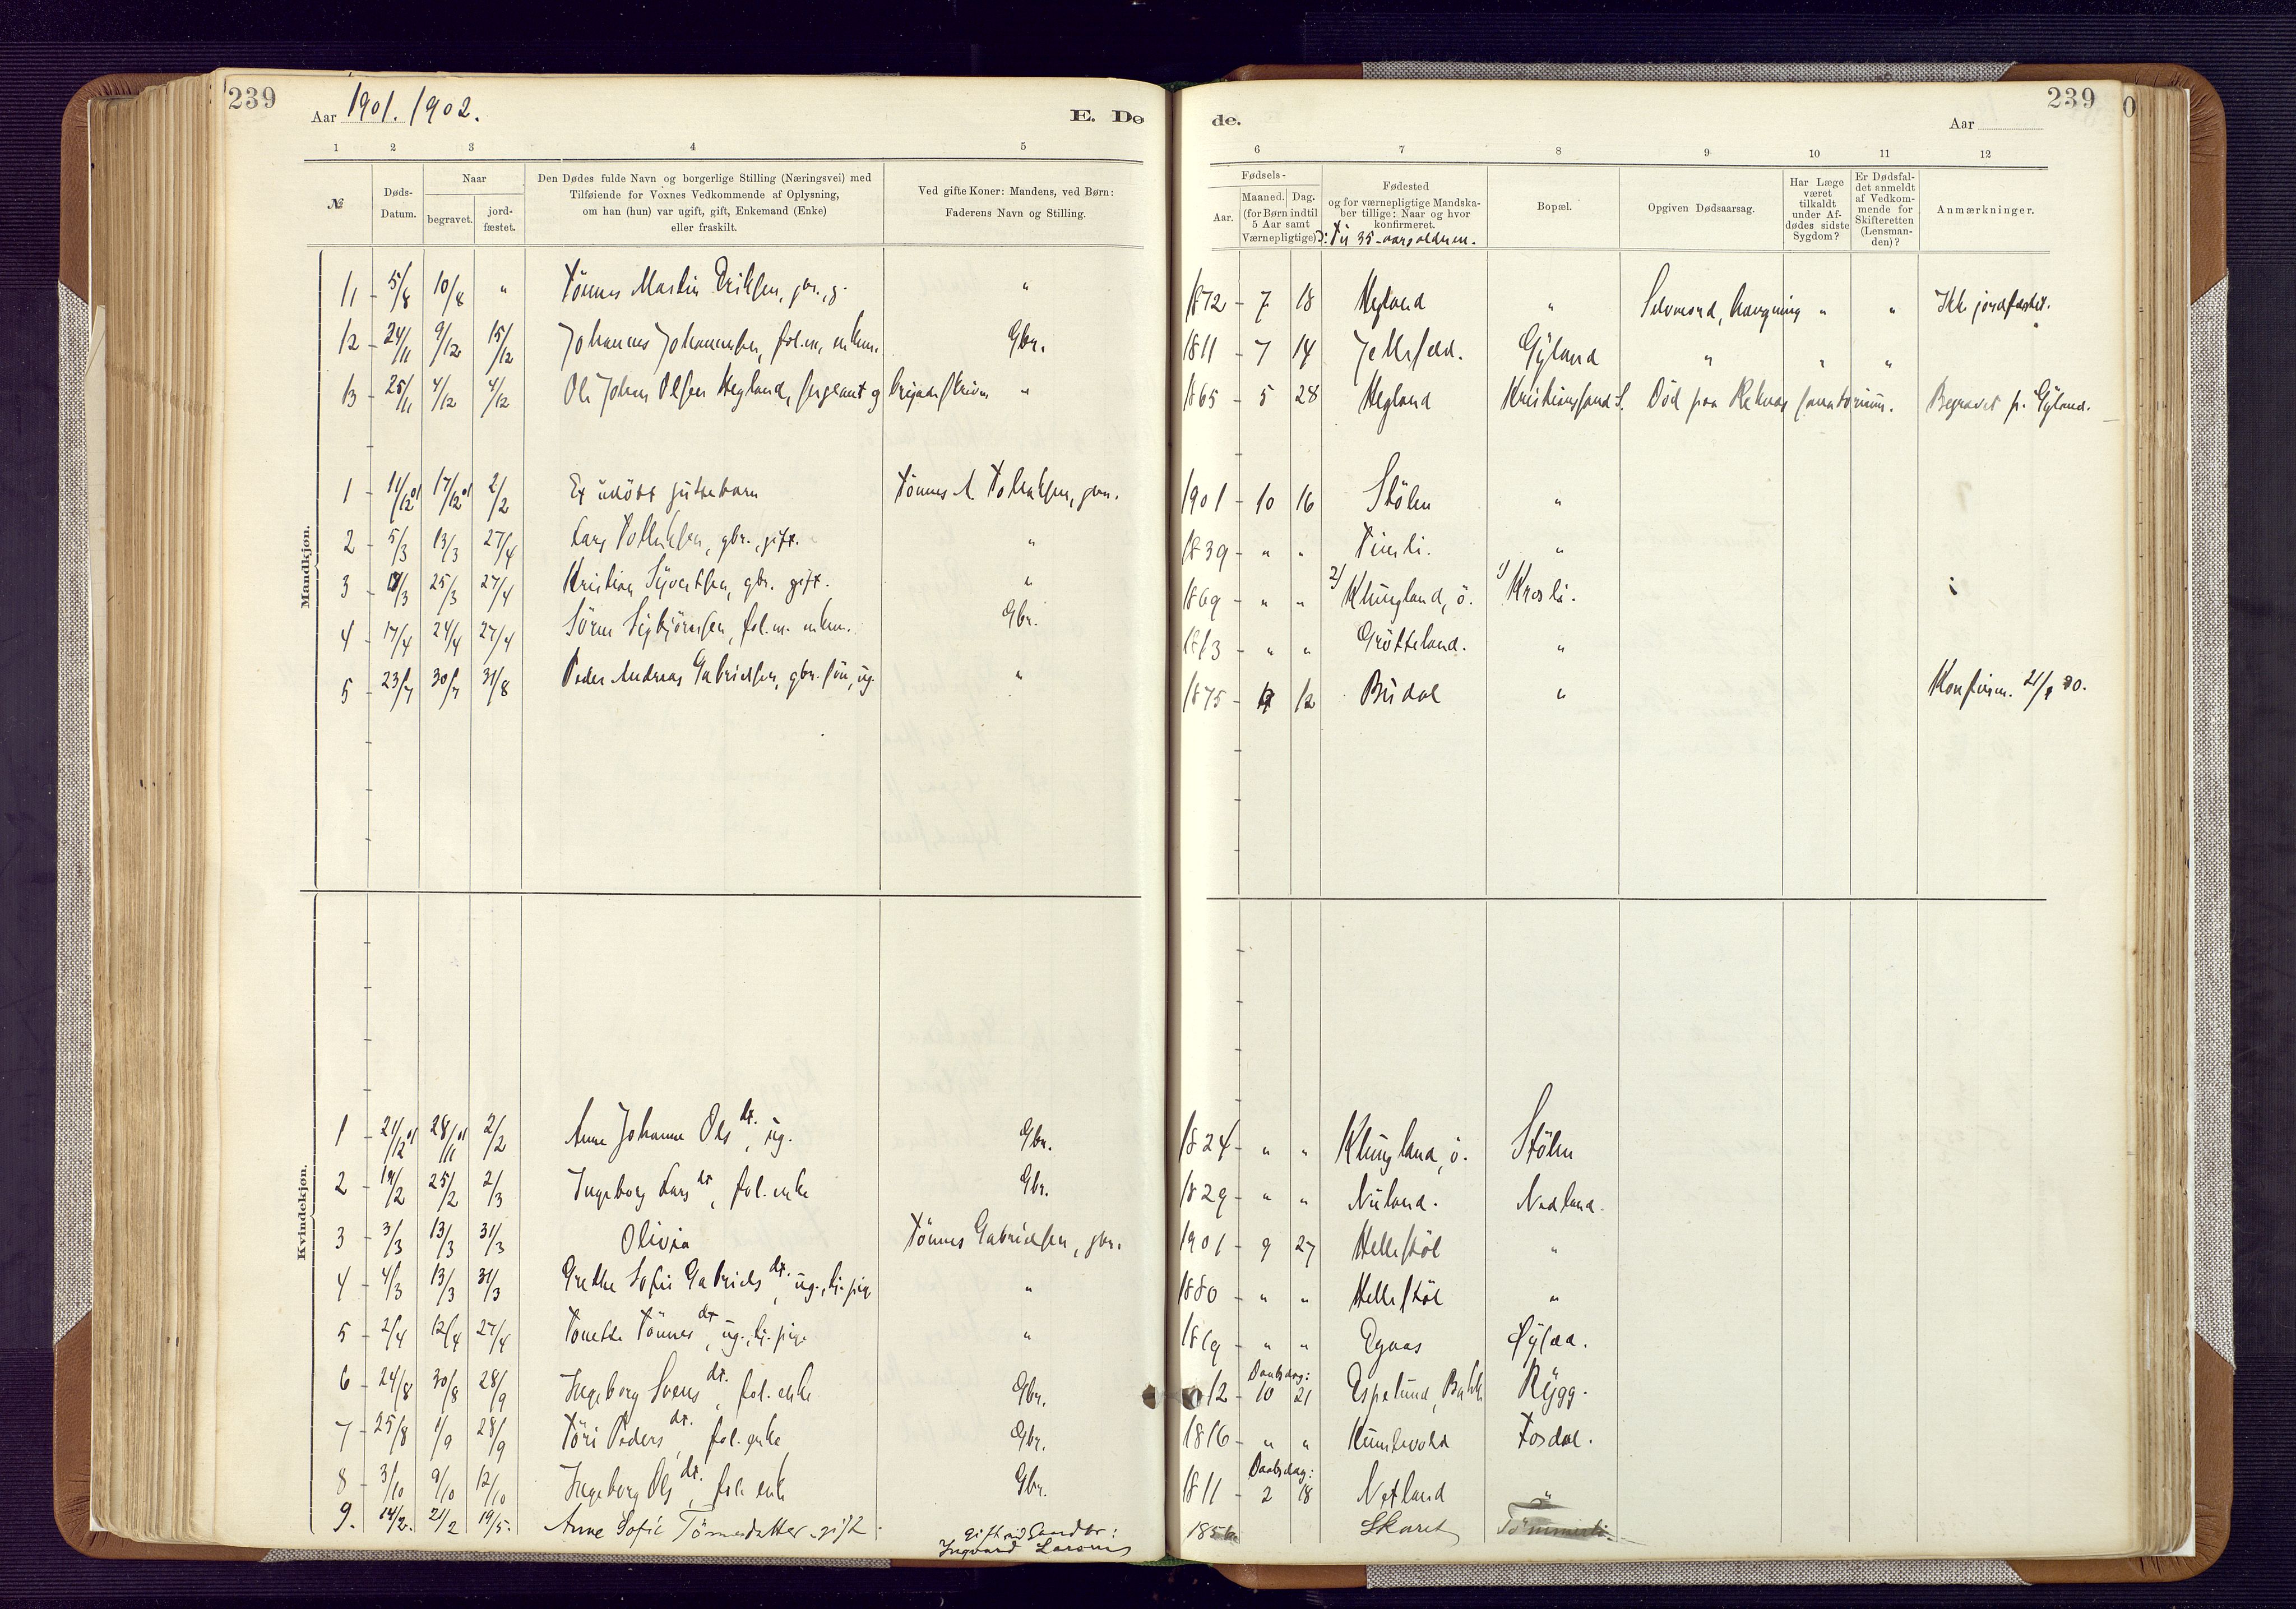 239
Aar 1901. 1902.
E. Dø
1 2 3 4 5
№
Døds-
Datum.
Naar
begravet.
jord-
fæstet.
Den Dødes fulde Navn og borgerlige Stilling (Næringsvei) med
Tilføiende for Voxnes Vedkommende af Oplysning,
om han (hun) var ugift, gift, Enkemand (Enke)
eller fraskilt.
Ved gifte Koner: Mandens, ved Børn:
Faderens Navn og Stilling.
Mandkjøn.
11 - 5/8 10/8 " Tönnes Martin Eriksen, gbr., g. "
12 - 24/11 9/12 15/12 Johannes Johannessen, fol.m, enkm. Gbr.
13 - 25/11 4/12 4/12 Ole Johan Olsen Hegland, sergeant og brigadeskriver "
1 - 11/12 01 17/12 01 2/2 Et udöbt guttebarn Tönnes A. Tollaksen, gbr.
2 - 5/3 13/3 27/4 Lars Tollaksen, gbr., gift. "
3 25/3 27/4 Kristian Syvertsen, gbr. gift. "
4 - 17/4 24/4 27/4 Sören Sigbjörnsen, fol.m. enkm. Gbr.
5 23/7 30/7 31/8 Peder Andreas Gabrielsen, gbr. sön, ug. "
Kvindekjøn.
1 - 21/12 01 28/11 01 2/2 Anne Johanne Olsdt., ug. Gbr.
2 - 19/2 25/2 2/3 Ingeborg Larsdt, fol. enke Gbr.
3 - 3/3 13/3 31/3 Olivia Tönnes Gabrielsen, gbr.
4 - 4/3 13/3 31/3 Grethe Sofie Gabrielsdt., ug., tj. pige "
5 - 2/4 12/4 27/4 Tonette Tönnesdt, ug., tj. pige "
6 - 24/8 30/8 28/9 Ingeborg Svensdt., fol. enke Gbr.
7 - 25/8 1/9 28/9 Töri Pedersdt., fol. enke Gbr.
8 - 3/10 9/10 12/10 Ingeborg Olsdt., fol. enke Gbr.
9. 14/2. 21/2 19/5. Anne Sofie Tönnesdatter - gift. gift m/ Gaardbr:
Ingvard Larsen
239
0
de.
Aar
6 7 8 9 10 11 12
Fødsels-
Aar.
Maaned. Dag.
(for Børn indtil
5 Aar samt
Værnepligtige)
Fødested
og for værnepligtige Mandska-
ber tillige: Naar og hvor
konfirmeret.
ɔ: Til 35-aarsalderen.
Bopæl.
Opgiven Dødsaarsag.
Har Læge
været
tilkaldt
under Af-
dødes sidste
Sygdom?
Er Dødsfal-
det anmeldt
af Vedkom-
mende for
Skifteretten
(Lensman-
den)?
Anmærkninger.
1872 - 7 18 Hegland " Selvmord, hængning " " Ikke jordfæstet.
1811 - 7 14 Gyland " " "
1865 - 5 28 Hegland Kristianssand S. Död paa Reknæs sanatorium. Begravet p. Gyland.
1901 - 10 16 Stölen "
1839 - " " Timli. "
1869 - " " 2/ Klungland, ö. 1/ Krosli.
1813 - " " Grötteland. "
1875 - 12 Budal " Konfirm.
1824 - " " Klungland, ö. Stölen
1829 - " " Nuland. Nedland.
1901 - 9 27 Hellestöl "
1880 - " " Hellestöl "
1869 - " " Egnas
Daabsdag:
1812 - 10 21 Espelund, Bakke Rygg.
1816 - " " Kumlevold Tosdal.
Daabsdag:
1811 - 2 18 Netland "
1856 Skaret Tömmerli.